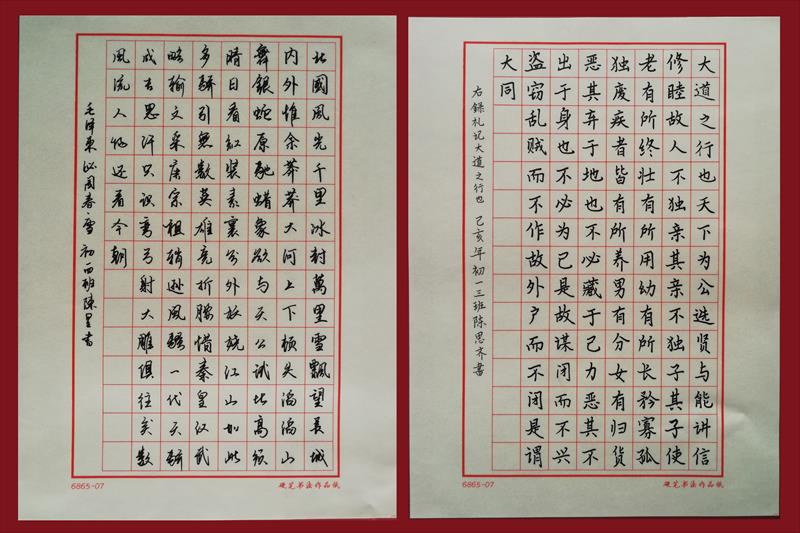 北國風光千里冰封萬里雪飄望長城
内外惟余莽莽大河上下頓失滔滔山
舞銀蛇原馳蠟象欲与天公試比高須
晴日看紅裝素裹分外妖嬈江山如此
多驕引無數英雄竞折腰惜秦皇汉武
略輸文采唐宗祖稍遜風騷一代天驕
成吉思汗只识弯弓射大雕俱往矣數
風流人物还看今朝
毛泽东 沁园春·雪 初一班陈书
6865-07
硬笔书法作品纸
大道之行也天下为公选贤与能讲信
修睦故人不独亲其亲不独子其子使
老有所终壮有所用幼有所长矜寡孤
独废疾者皆有所养男有分女有归货
恶其弃于地也不必藏于己力恶其不
出于身也不必为己是故谋闭而不兴
盗窃乱贼而不作故外户而不闭是谓
大同
右録礼记大道之行也 己亥年 初一三班陈思齐書
6865-07
硬笔书法作品纸